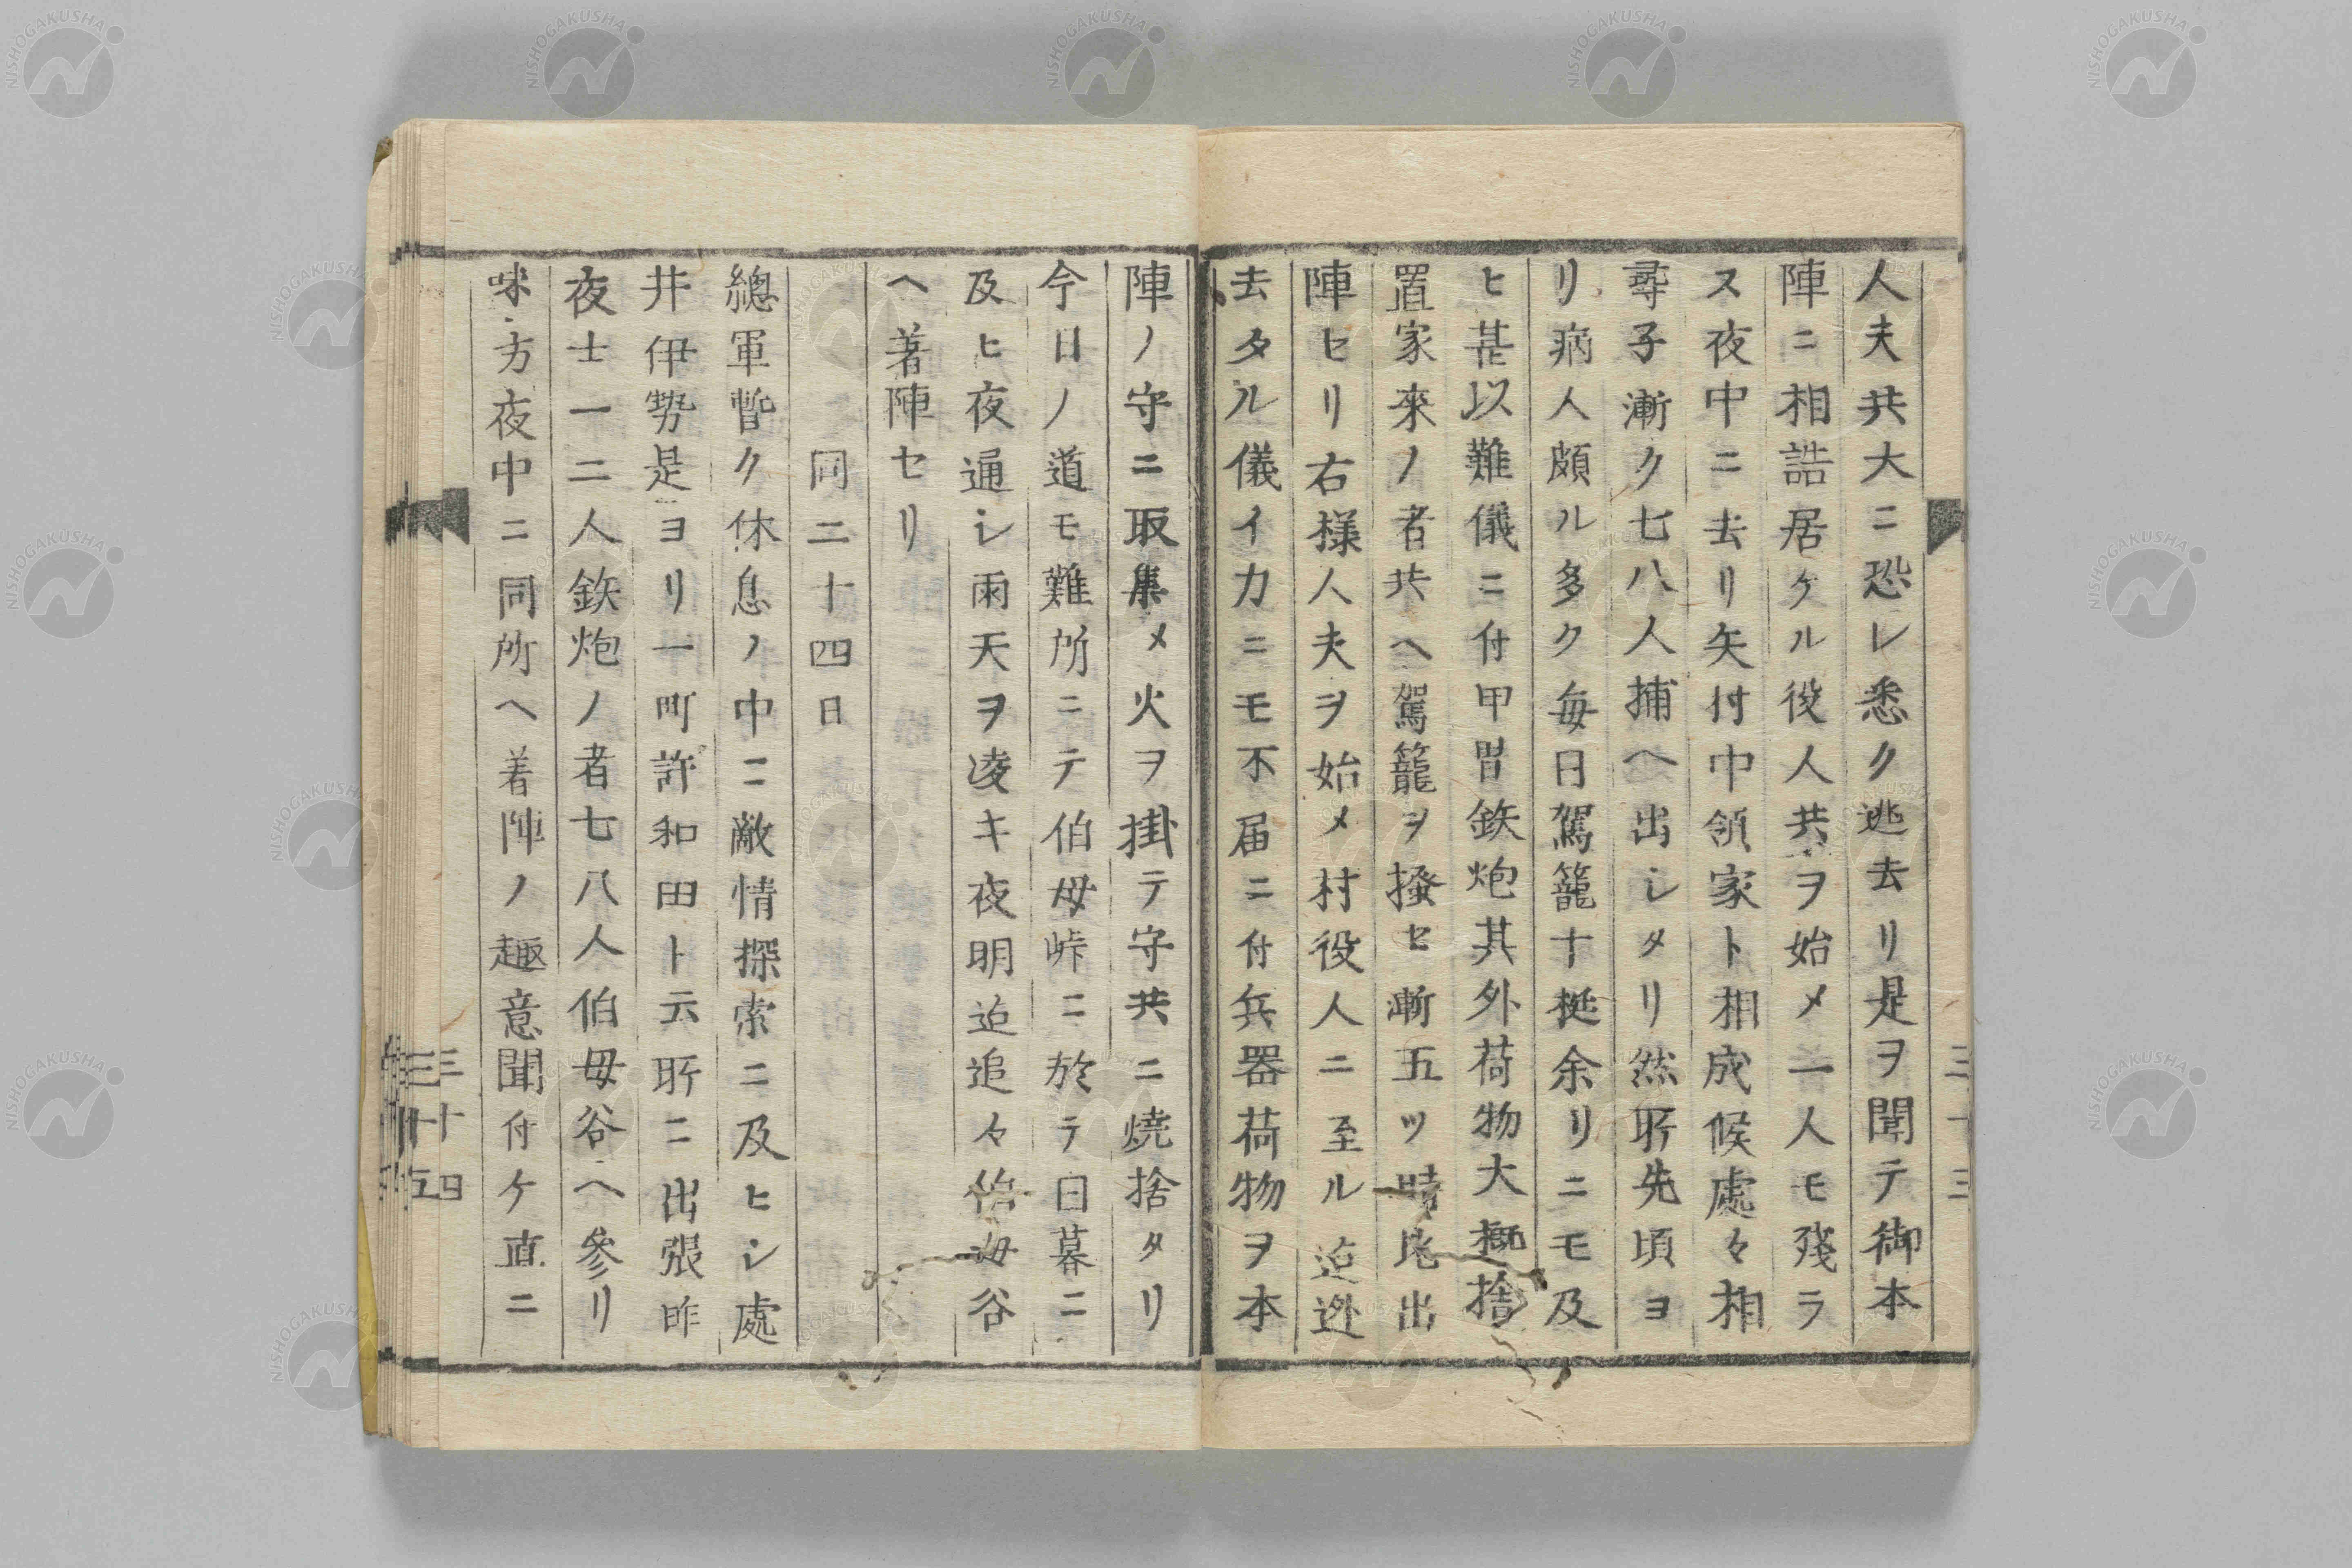 人夫共大ニ恐レ悉ク逃去リ是ヲ聞テ御本
陣ニ相詰居ケル役人共ヲ始メ一人モ殘ラ
ス夜中ニ去リ矢付中領家ト相成候處々相
尋子漸ク七八人捕ヘ出シタリ然所先頃ヨ
リ病人頗ル多ク毎日駕籠十挺余リニモ及
ヒ甚以難儀ニ付甲冑鉄炮其外荷物大概捨
置家來ノ者共ヘ駕籠ヲ撥セ漸五ツ時比出
陣セリ右様人夫ヲ始メ村役人ニ至ル迄逃
去タル儀イカニモ不届ニ付兵器荷物ヲ本
陣ノ守ニ取集メ火ヲ掛テ守共ニ焼捨タリ
今日ノ道モ難所ニテ伯母峠ニ於テ日暮ニ
及ヒ夜通シ雨天ヲ凌キ夜明迄追々伯母谷
ヘ著陣セリ
同二十四日
總軍暫ク休息ノ中ニ敵情探索ニ及ヒシ處
井伊勢是ヨリ一町許和田ト云所ニ出張昨
夜士一二人鉄炮ノ者七八人伯母谷ヘ參リ
味方夜中ニ同所ヘ着陣ノ趣意聞付ケ直ニ
三十四
NISHOGAKUSHA